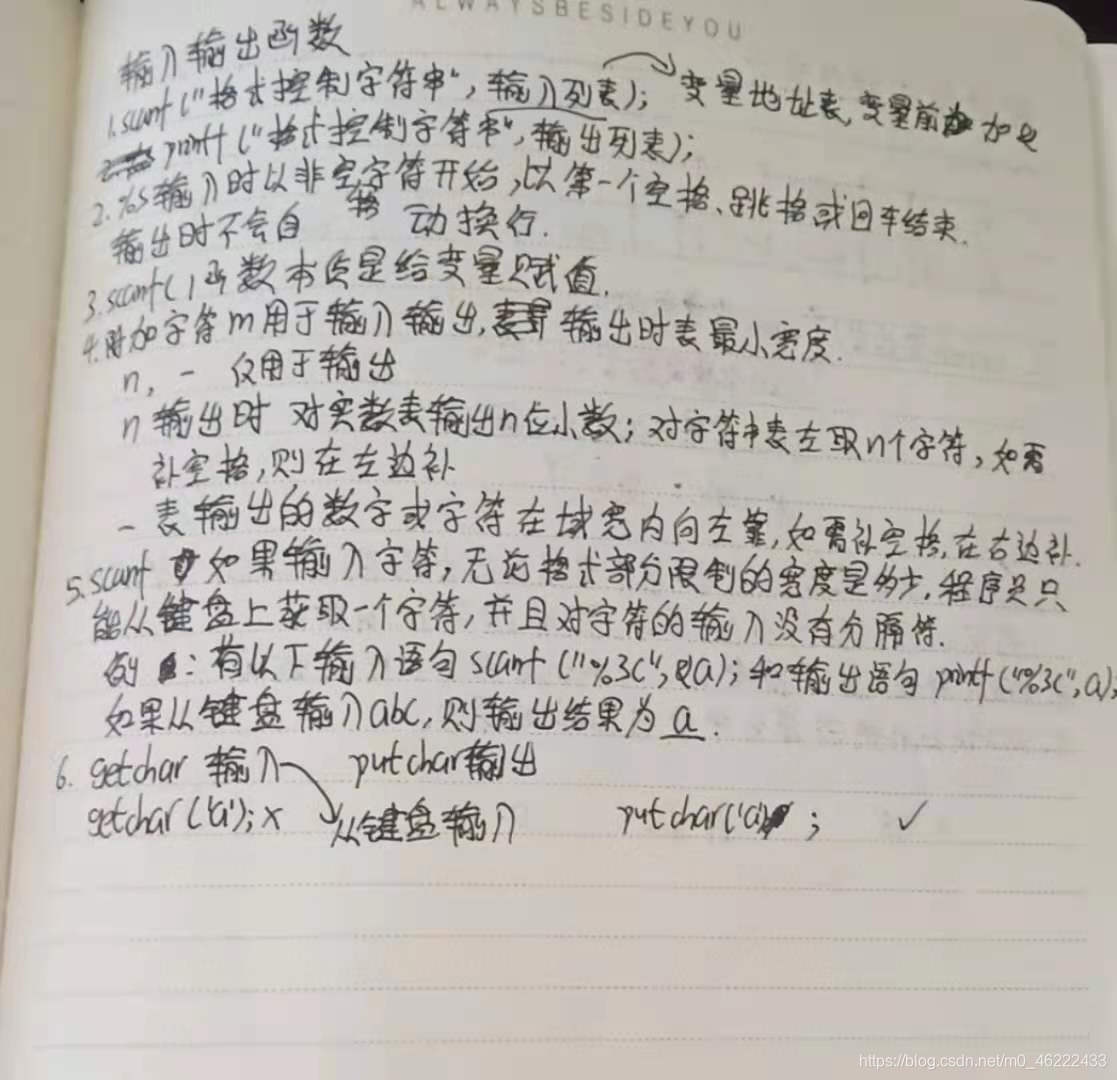 ALWAYSBESIDEYOU
输入输出函数
1. scanf("格式控制字符串", 输入列表); 变量地址表, 变量前 加&
printf ("格式控制字符串", 输出列表);
2. %s 输入时以非空字符开始, 以第一个空格、跳格或回车结束.
输出时不会自 动换行.
3. scanf( ) 函数本质是给变量赋值.
4. 附加字符 m 用于输入输出, 输出时表最小宽度.
n, - 仅用于输出
n 输出时 对实数表输出n位小数; 对字符串表左取n个字符, 如需
补空格, 则在左边补
- 表输出的数字或字符在域宽内向左靠, 如需补空格, 在右边补.
5. scanf 如果输入字符, 无论格式部分限制的宽度是多少, 程序是只
能从键盘上获取一个字符, 并且对字符的输入没有分隔符.
例: 有以下输入语句 scanf ("%3c", &a); 和输出语句 printf ("%3c", a);
如果从键盘输入abc, 则输出结果为 a .
6. getchar 输入 putchar 输出
getchar('a'); × 从键盘输入 putchar('a') ; ✓
https://blog.csdn.net/m0_46222433